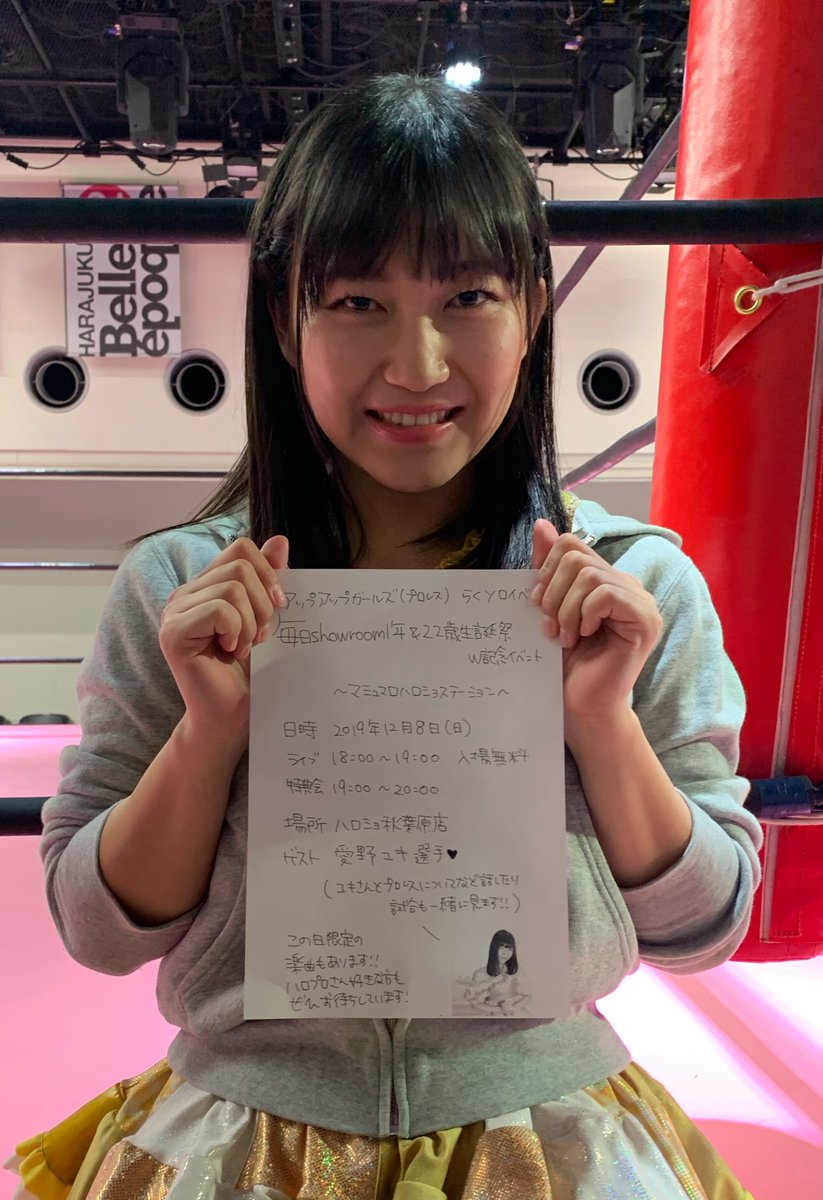 HARAJUKU
Belle
époque
アップアップガールズ(プロレス) らくYロイベ
毎日showroom1年&22歳生誕祭
W記念イベント
~マシュマロハロショステーション~
日時 2019年12月8日(日)
ライブ 18:00~19:00 入場無料
特典会 19:00~20:00
場所 ハロショ秋葉原店
ゲスト 愛野ユキ選手♥
(ユキさんとプロレスについてなど話したり
試合も一緒に見ます!!)
この日限定の
楽曲もあります!!
ハロプロさん好きな方も
ぜひお待ちしています!